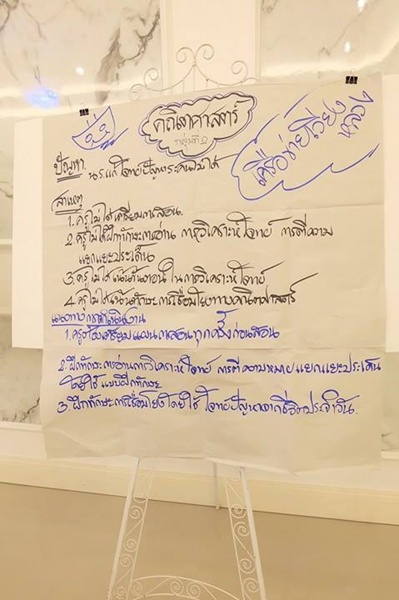 คณิตศาสตร์
กลุ่มที่ 2
เครือข่ายเวียง
หลวง
ปัญหา
นร.แก้โจทย์ปัญหาระคนไม่ได้
สาเหตุ
1. ครูไม่ได้เตรียมการสอน
2. ครูไม่ได้ฝึกทักษะการอ่าน การวิเคราะห์โจทย์ การตีความ
แยกแยะประเด็น
3. ครูไม่ได้เน้นขั้นตอนในการวิเคราะห์โจทย์
4. ครูไม่ได้เน้นทักษะการเชื่อมโยงทางคณิตศาสตร์
แนวทางการดำเนินงาน
1. ครูต้องเตรียมแผนการสอนทุกครั้งก่อนสอน
2. ฝึกทักษะการอ่านการวิเคราะห์โจทย์ การตีความหมายแยกแยะประเด็น
โดยใช้ แบบฝึกทักษะ
3. ฝึกทักษะการเชื่อมโยงโดยใช้โจทย์ปัญหาจากชีวิตประจำวัน